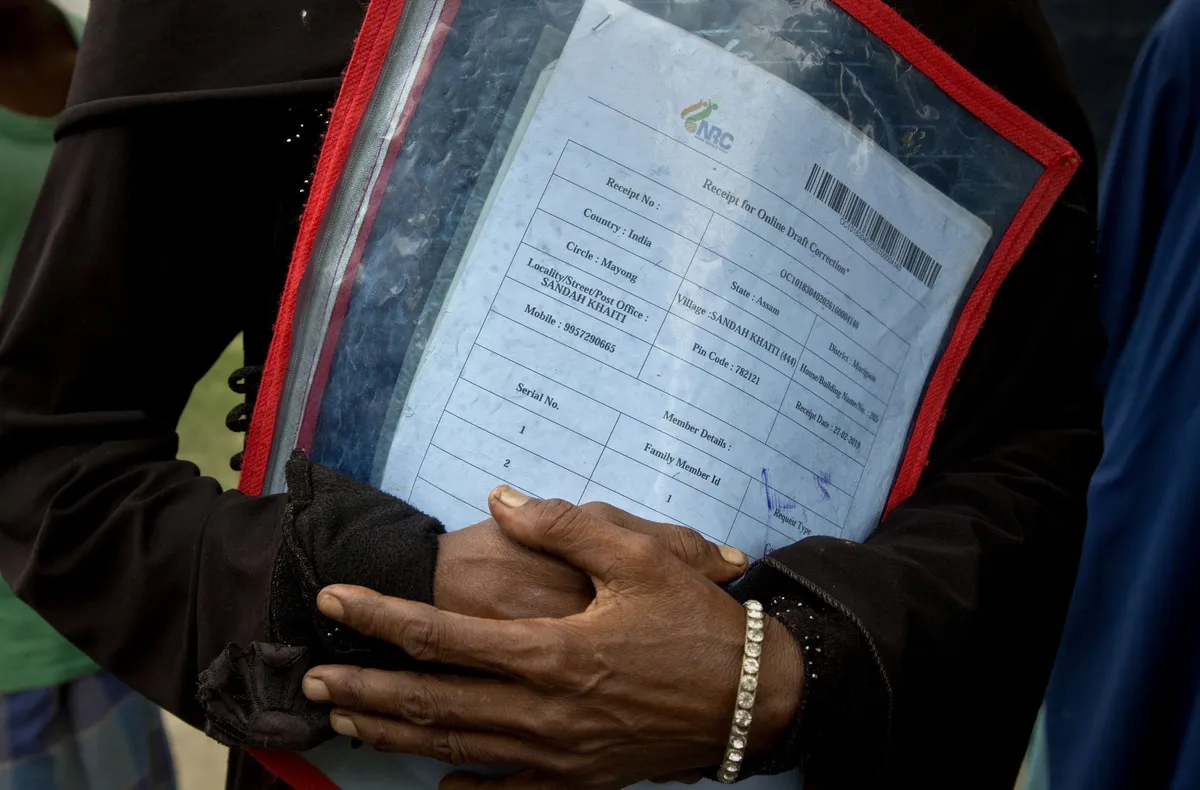 NRC
Receipt for Online Draft Correction*
Receipt No :
Country : India
State : Assam
District : Morigaon
Circle : Mayong
Village :SANDAH KHAITI (444)
House/Building Name/No. :
Locality/Street/Post Office :
SANDAH KHAITI
Pin Code : 782121
Receipt Date : 21-02-2019
Mobile : 9957290665
Member Details :
Serial No.
Family Member Id
Request Type
1
1
2